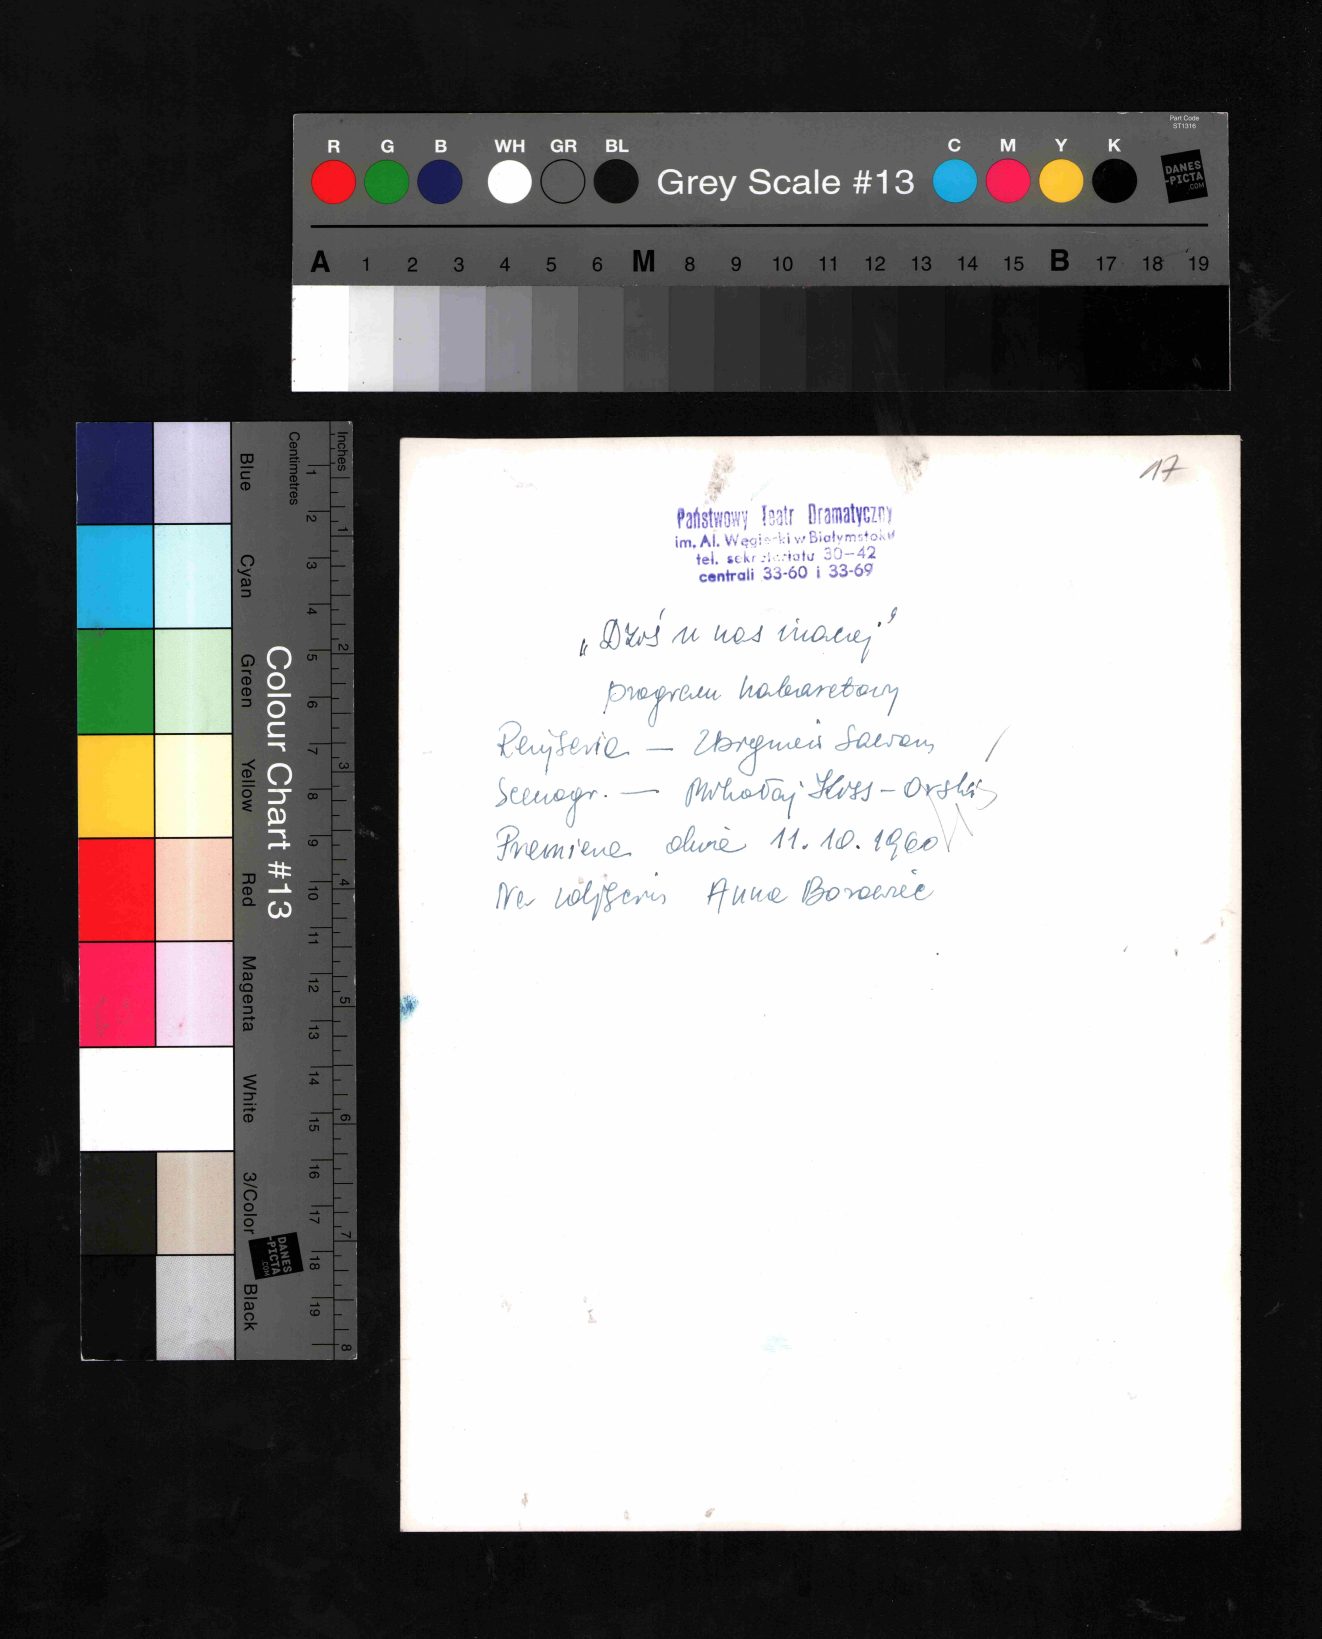 Part Code
ST1316
R G B WH GR BL Grey Scale #13 C M Y K
DANES
-PICTA
.COM
A 1 2 3 4 5 6 M 8 9 10 11 12 13 14 15 B 17 18 19
Colour Chart #13
Blue
Cyan
Green
Yellow
Red
Magenta
White
3/Color
Black
DANES
-PICTA
.COM
Centimetres
1 2 3 4 5 6 7 8 9 10 11 12 13 14 15 16 17 18 19
Inches
1 2 3 4 5 6 7 8
17
Państwowy Teatr Dramatyczny
im. Al. Węgierki w Białymstoku
tel. sekretariatu 30-42
centrali 33-60 i 33-69
„Dziś u nas inaczej"
program kabaretowy
Reżyseria — Zbigniew Sawan
Scenogr. — Mikołaj Kiss-Orski
Premiera dnia 11.10.1960
Na zdjęciu Anna Borowiec